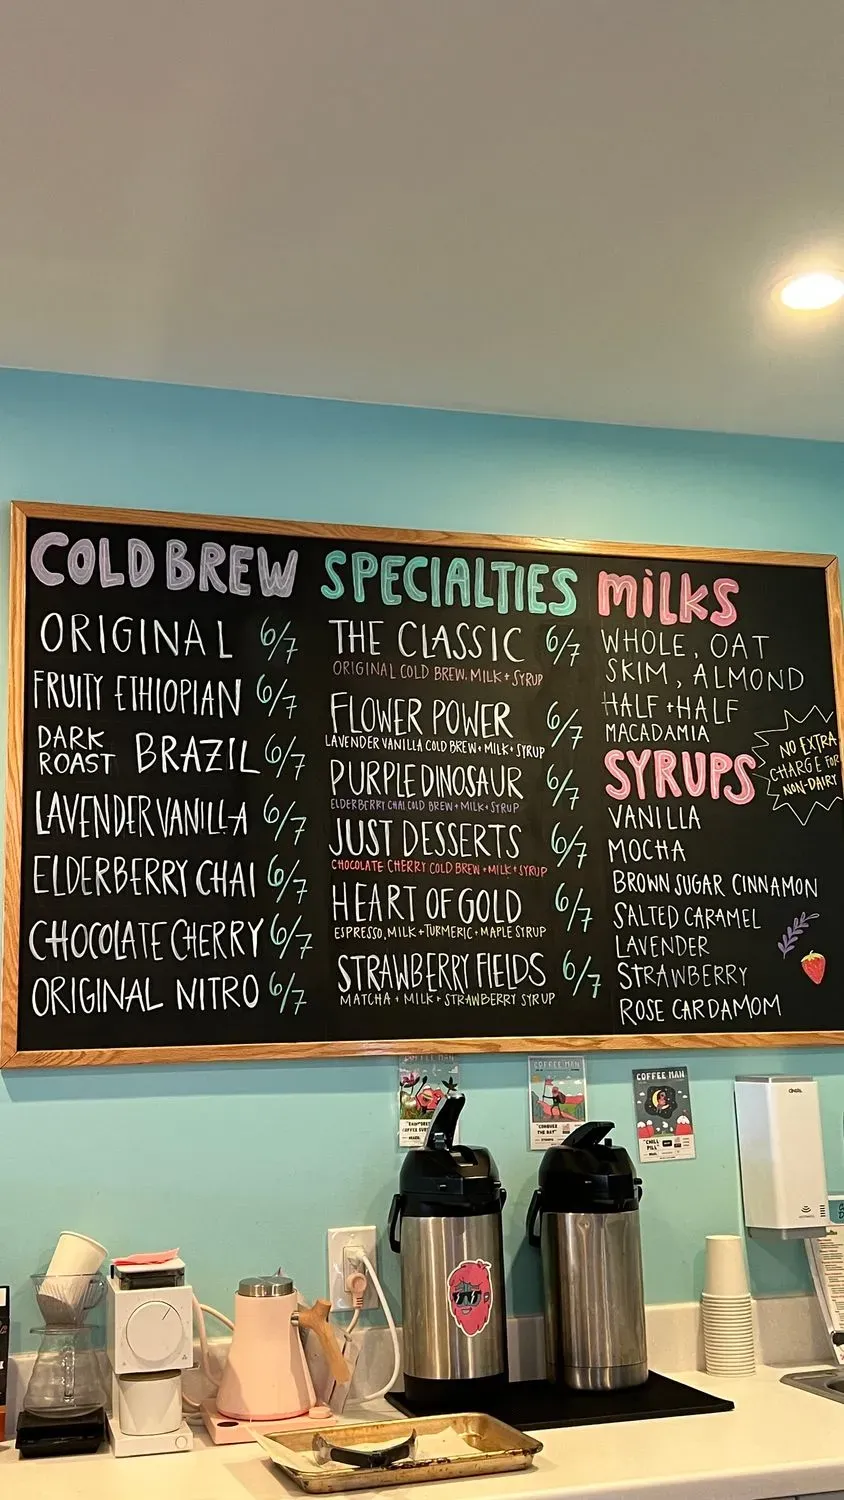 COLD BREW
ORIGINAL 6/7
FRUITY ETHIOPIAN 6/7
DARK ROAST BRAZIL 6/7
LAVENDER VANILLA 6/7
ELDERBERRY CHAI 6/7
CHOCOLATE CHERRY 6/7
ORIGINAL NITRO 6/7
SPECIALTIES
THE CLASSIC 6/7
ORIGINAL COLD BREW, MILK + SYRUP
FLOWER POWER 6/7
LAVENDER VANILLA COLD BREW + MILK + SYRUP
PURPLE DINOSAUR 6/7
ELDERBERRY CHAI COLD BREW + MILK + SYRUP
JUST DESSERTS 6/7
CHOCOLATE CHERRY COLD BREW + MILK + SYRUP
HEART OF GOLD 6/7
ESPRESSO, MILK + TURMERIC + MAPLE SYRUP
STRAWBERRY FIELDS 6/7
MATCHA + MILK + STRAWBERRY SYRUP
MiLKS
WHOLE, OAT
SKIM, ALMOND
HALF + HALF
MACADAMIA
NO EXTRA
CHARGE FOR
NON-DAIRY
SYRUPS
VANILLA
MOCHA
BROWN SUGAR CINNAMON
SALTED CARAMEL
LAVENDER
STRAWBERRY
ROSE CARDAMOM
COFFEE MAN
COFFEE MAN
"CONQUER
THE DAY"
COFFEE MAN
"CHILL
PILL"